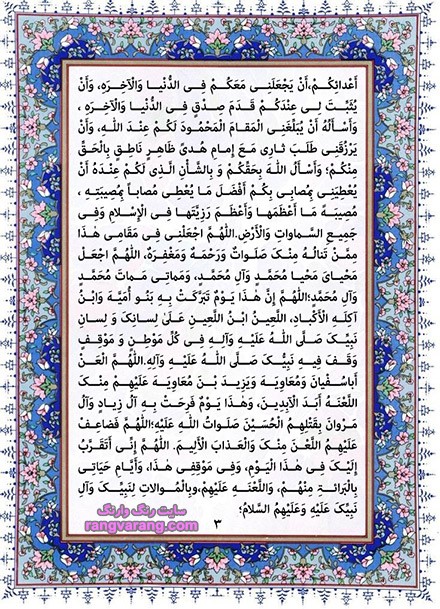 أَعْدائِکُمْ،أَنْ یَجْعَلَنِی مَعَکُمْ فِی الدُّنْیا وَالْآخِرَهِ، وَأَنْ
یُثَبِّتَ لِی عِنْدَکُمْ قَدَمَ صِدْقٍ فِی الدُّنْیا وَالْآخِرَهِ ،
وَأَسْأَلُهُ أَنْ یُبَلِّغَنِی الْمَقامَ الْمَحْمُودَ لَکُمْ عِنْدَ اللّٰهِ، وَأَنْ
یَرْزُقَنِی طَلَبَ ثارِی مَعَ إِمامِ هُدیً ظَاهِرٍ نَاطِقٍ بِالْحَقِّ
مِنْکُمْ؛ وَأَسْأَلُ اللّٰهَ بِحَقِّکُمْ وَ بِالشَّأْنِ الَّذِی لَکُمْ عِنْدَهُ أَنْ
یُعْطِیَنِی بِمُصابِی بِکُمْ أَفْضَلَ مَا یُعْطِی مُصاباً بِمُصِیبَتِهِ ،
مُصِیبَهً مَا أَعْظَمَها وَأَعْظَمَ رَزِیَّتَها فِی الْإِسْلامِ وَفِی
جَمِیعِ السَّماواتِ وَالْأَرْضِ.اللّٰهُمَّ اجْعَلْنِی فِی مَقامِی هٰذَا
مِمَّنْ تَنالُهُ مِنْکَ صَلَواتٌ وَرَحْمَهٌ وَمَغْفِرَهٌ، اللّٰهُمَّ اجْعَلْ
مَحْیایَ مَحْیا مُحَمَّدٍ وَآلِ مُحَمَّدٍ، وَمَماتِی مَماتَ مُحَمَّدٍ
وَآلِ مُحَمَّدٍ؛اللّٰهُمَّ إِنَّ هٰذَا یَوْمٌ تَبَرَّکَتْ بِهِ بَنُو أُمَیَّهَ وَابْنُ
آکِلَهِ الْأَکْبادِ، اللَّعِینُ ابْنُ اللَّعِینِ عَلَیٰ لِسانِکَ وَ لِسانِ
نَبِیِّکَ صَلَّی اللّٰهُ عَلَیْهِ وَآلِهِ فِی کُلِّ مَوْطِنٍ وَ مَوْقِفٍ
وَقَفَ فِیهِ نَبِیُّکَ صَلَّی اللّٰهُ عَلَیْهِ وَآلِهِ.اللّٰهُمَّ الْعَنْ
أَباسُفْیانَ وَمُعَاوِیَهَ وَیَزِیدَ بْنَ مُعَاوِیَهَ عَلَیْهِمْ مِنْکَ
اللَّعْنَهُ أَبَدَ الْآبِدِینَ، وَهٰذَا یَوْمٌ فَرِحَتْ بِهِ آلُ زِیادٍ وَآلُ
مَرْوانَ بِقَتْلِهِمُ الْحُسَیْنَ صَلَواتُ اللّٰهِ عَلَیْهِ؛اللّٰهُمَّ فَضاعِفْ
عَلَیْهِمُ اللَّعْنَ مِنْکَ وَالْعَذابَ الْأَلِیمَ. اللّٰهُمَّ إِنِّی أَتَقَرَّبُ
إِلَیْکَ فِی هٰذَا الْیَوْمِ، وَفِی مَوْقِفِی هٰذَا، وَأَیَّامِ حَیَاتِی
بِالْبَرائَهِ مِنْهُمْ، وَاللَّعْنَهِ عَلَیْهِمْ،وبِالْمُوالاتِ لِنَبِیِّکَ وَآلِ
نَبِیِّکَ عَلَیْهِ وَعَلَیْهِمُ السَّلامُ؛
سایت رنگ وارنگ
rangvarang.com
۳